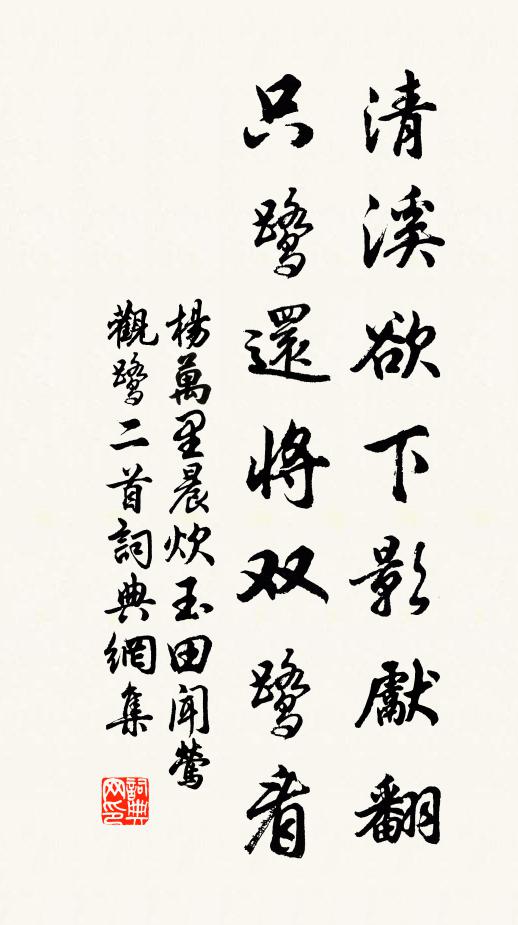 清溪欲下影獻翻
只鹭還將双鹭看
楊萬里晨炊玉田聞鶯
觀鹭二首詞典網集
詞典网印